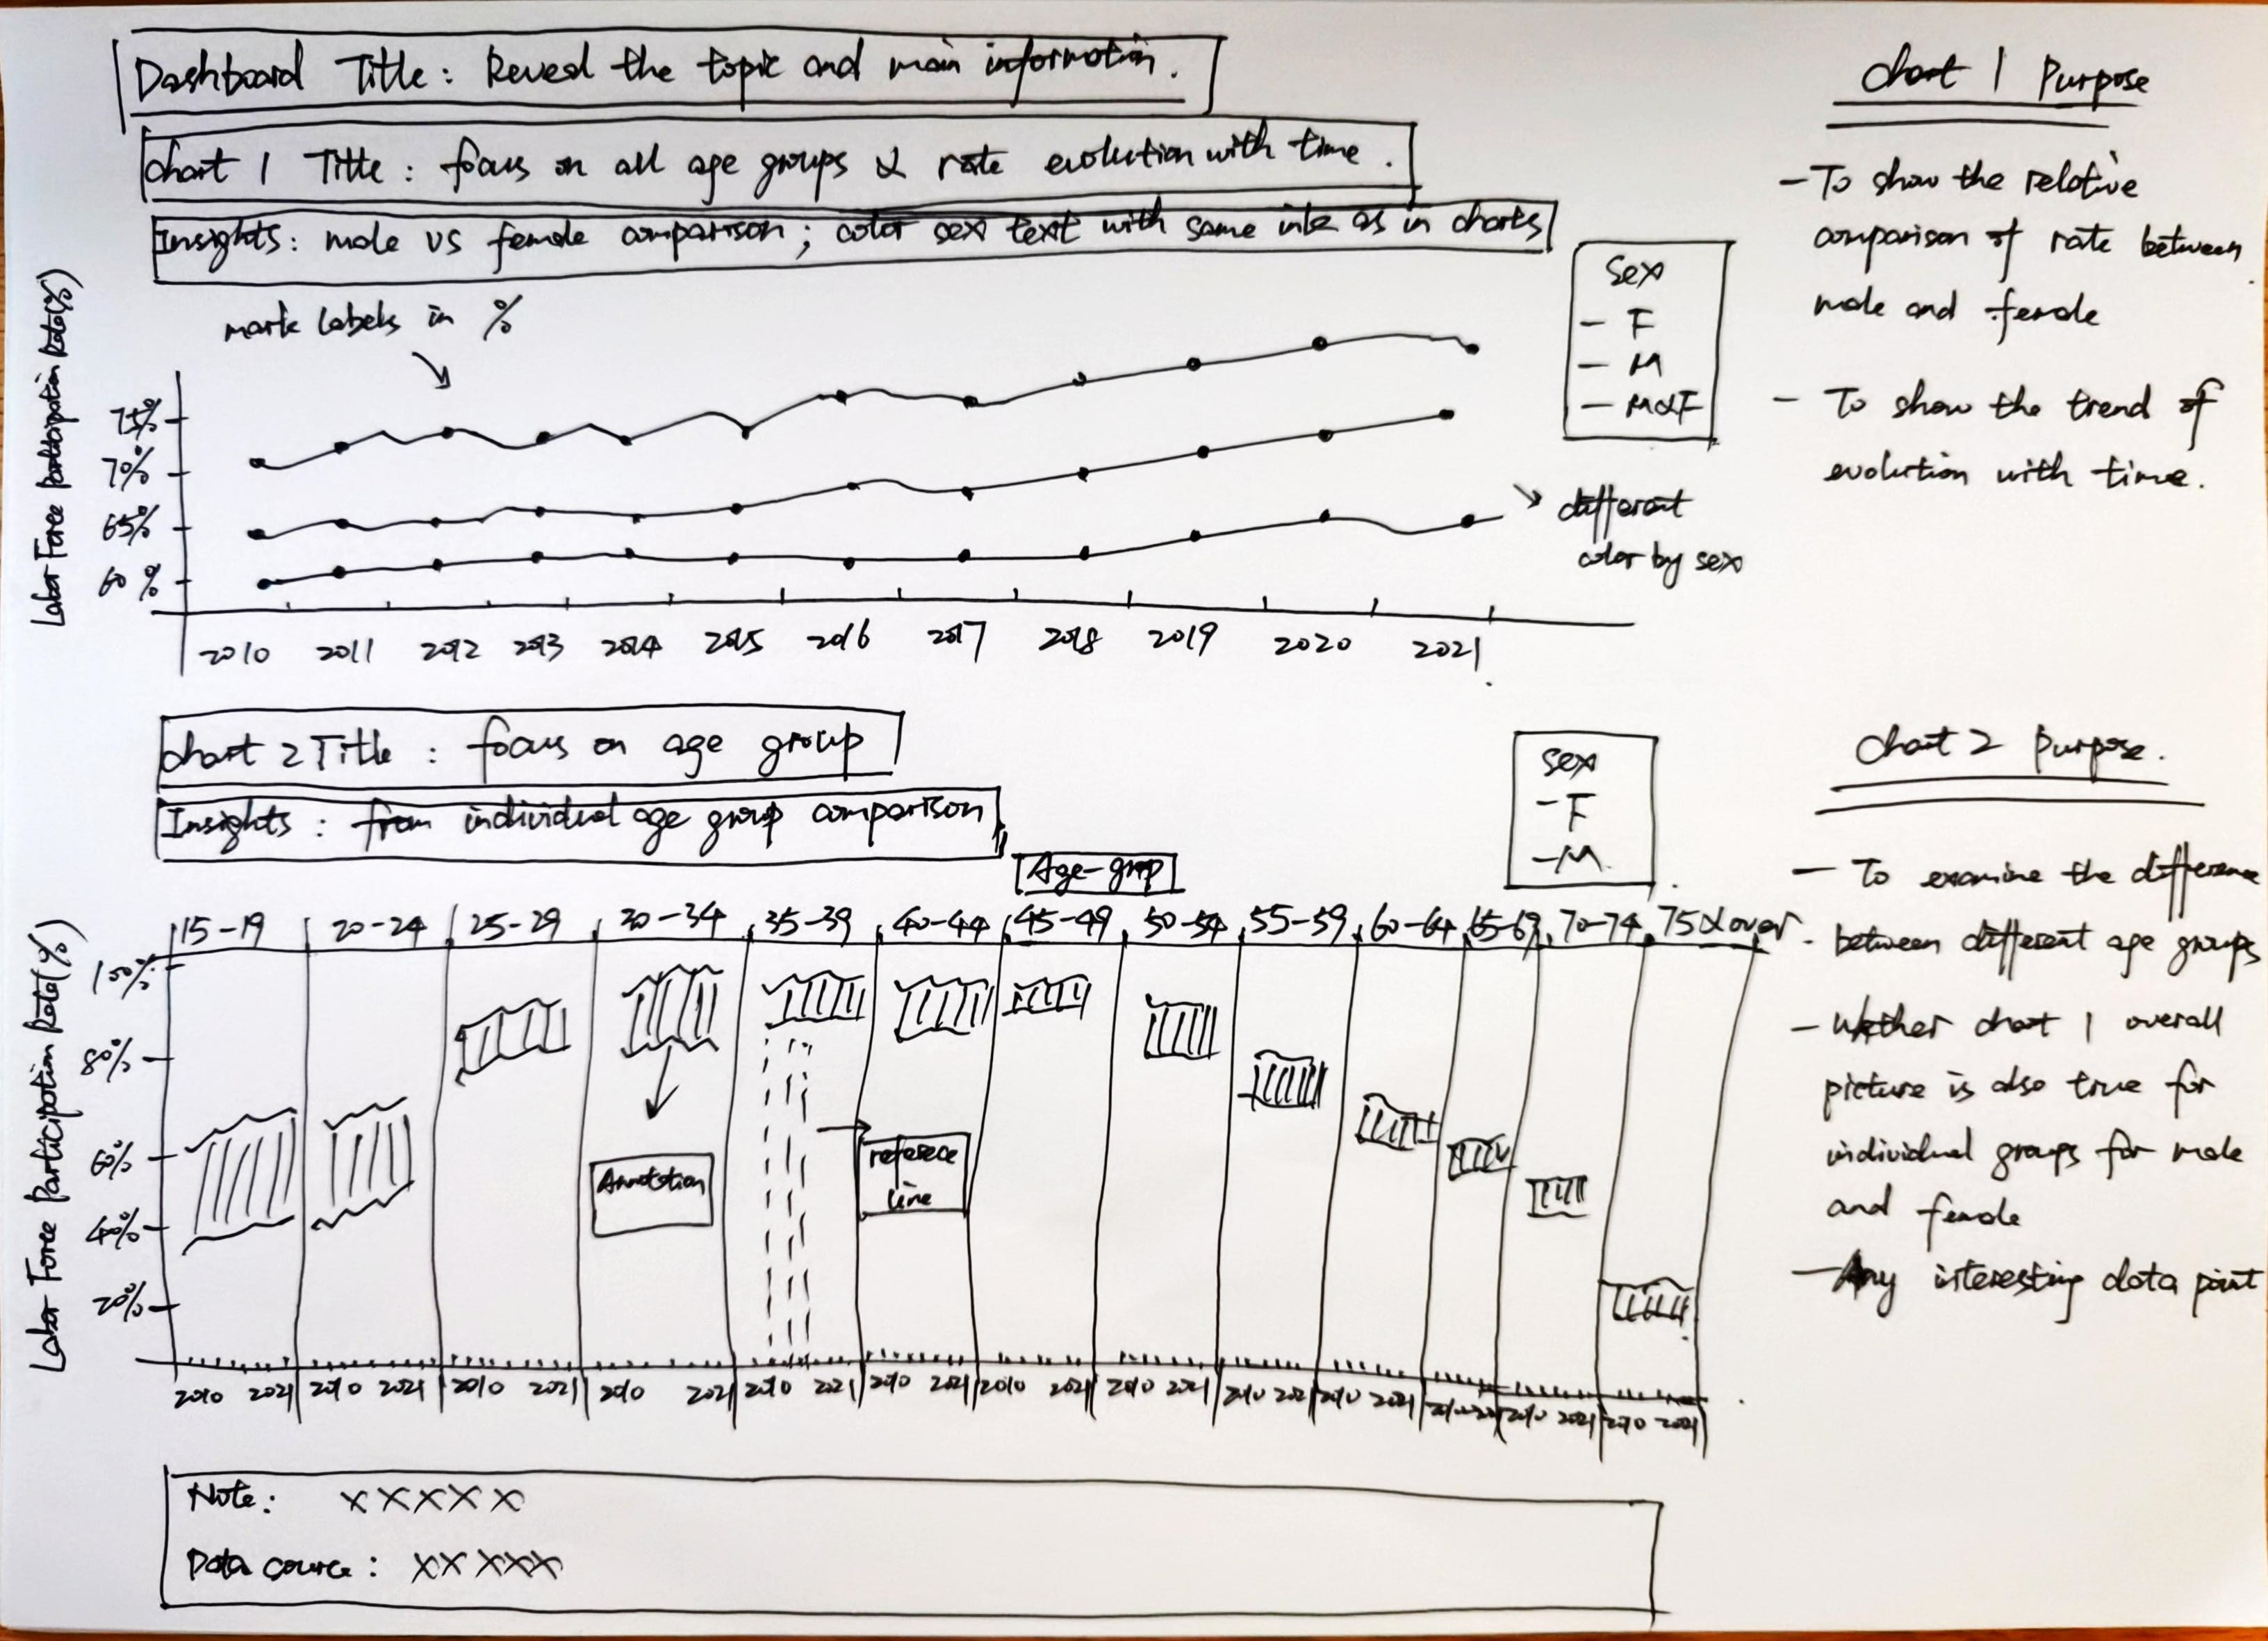 Dashboard Title: Reveal the topic and main information.
Chart 1 Title: focus on all age groups & rate evolution with time.
Insights: male vs female comparison; color sex text with same ink as in charts
mark labels in %
Sex
- F
- M
- M&F
Labor Force Participation Rate(%)
75%
70%
65%
60%
different
color by sex
2010 2011 2012 2013 2014 2015 2016 2017 2018 2019 2020 2021
Chart 1 Purpose
- To show the relative
comparison of rate between
male and female
- To show the trend of
evolution with time.
Chart 2 Title: focus on age group
Insights: from individual age group comparison
Sex
- F
- M
Age-grop
15-19 20-24 25-29 30-34 35-39 40-44 45-49 50-54 55-59 60-64 65-69 70-74 75&over
Labor Force Participation Rate(%)
100%
80%
60%
40%
20%
Annotation
referece
line
2010 2021 2010 2021 2010 2021 2010 2021 2010 2021 2010 2021 2010 2021 2010 2021 2010 2021 2010 2021 2010 2021 2010 2021 2010 2021
Chart 2 Purpose.
- To examine the difference
between different age groups
- Whether chart 1 overall
picture is also true for
individual groups for male
and female
- Any interesting data point
Note: xxxxx
Data source: xxxxx